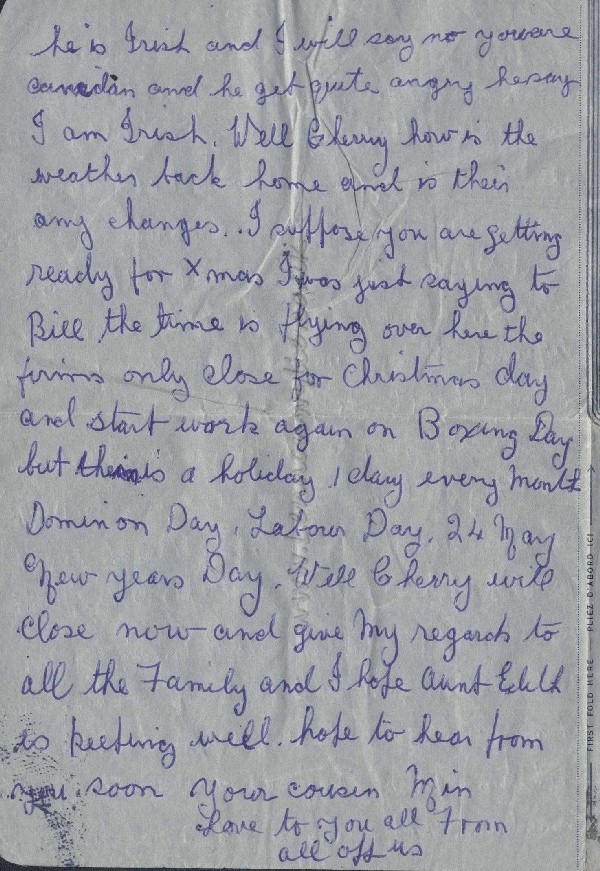 he is Irish and I will say no you are
canadian and he get quite angry he say
I am Irish. Well Cherry how is the
weather back home and is their
any changes.. I suppose you are getting
ready for Xmas I was just saying to
Bill the time is flying over here the
firms only close for Christmas day
and start work again on Boxing Day
but theiris a holiday 1 day every Month
Dominon Day, Labour Day, 24 May
New years Day. Well Cherry will
Close now and give My regards to
all the Family and I hope Aunt Edith
is keeping well. hope to hear from
you soon your cousin Min
Love to you all From
all off us
FIRST FOLD HERE PLIEZ D'ABORD ICI